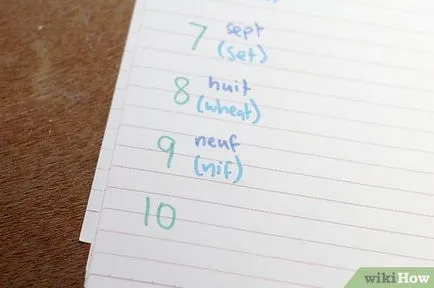 7 sept
(set)
8 huit
(wheat)
9 neuf
(nif)
10
wikiHow